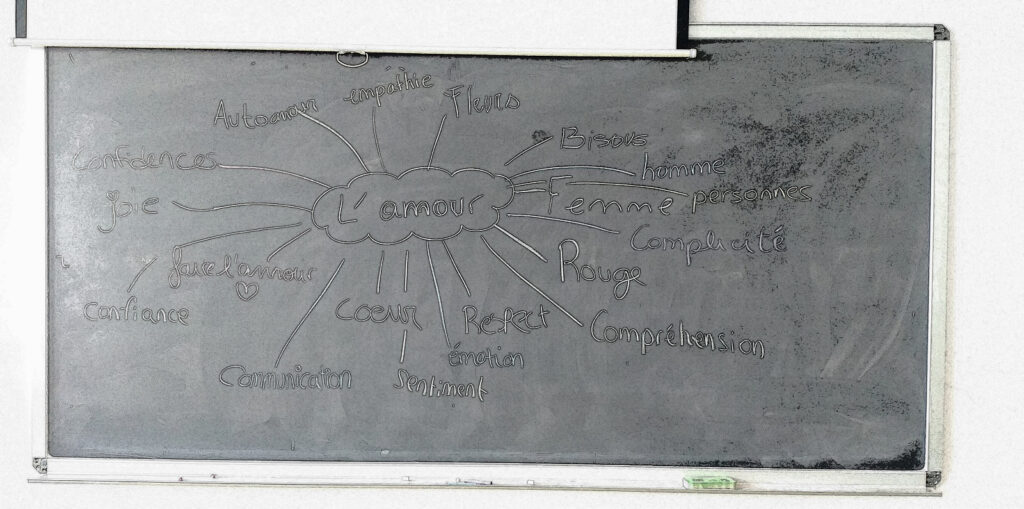 empathie
Fleurs
Autoamour
Bisous
Confidences
homme
joie
L'amour
Femme
personnes
Complicité
faire l'amour
Rouge
Confiance
Coeur
Respect
Compréhension
émotion
Communication
Sentiment